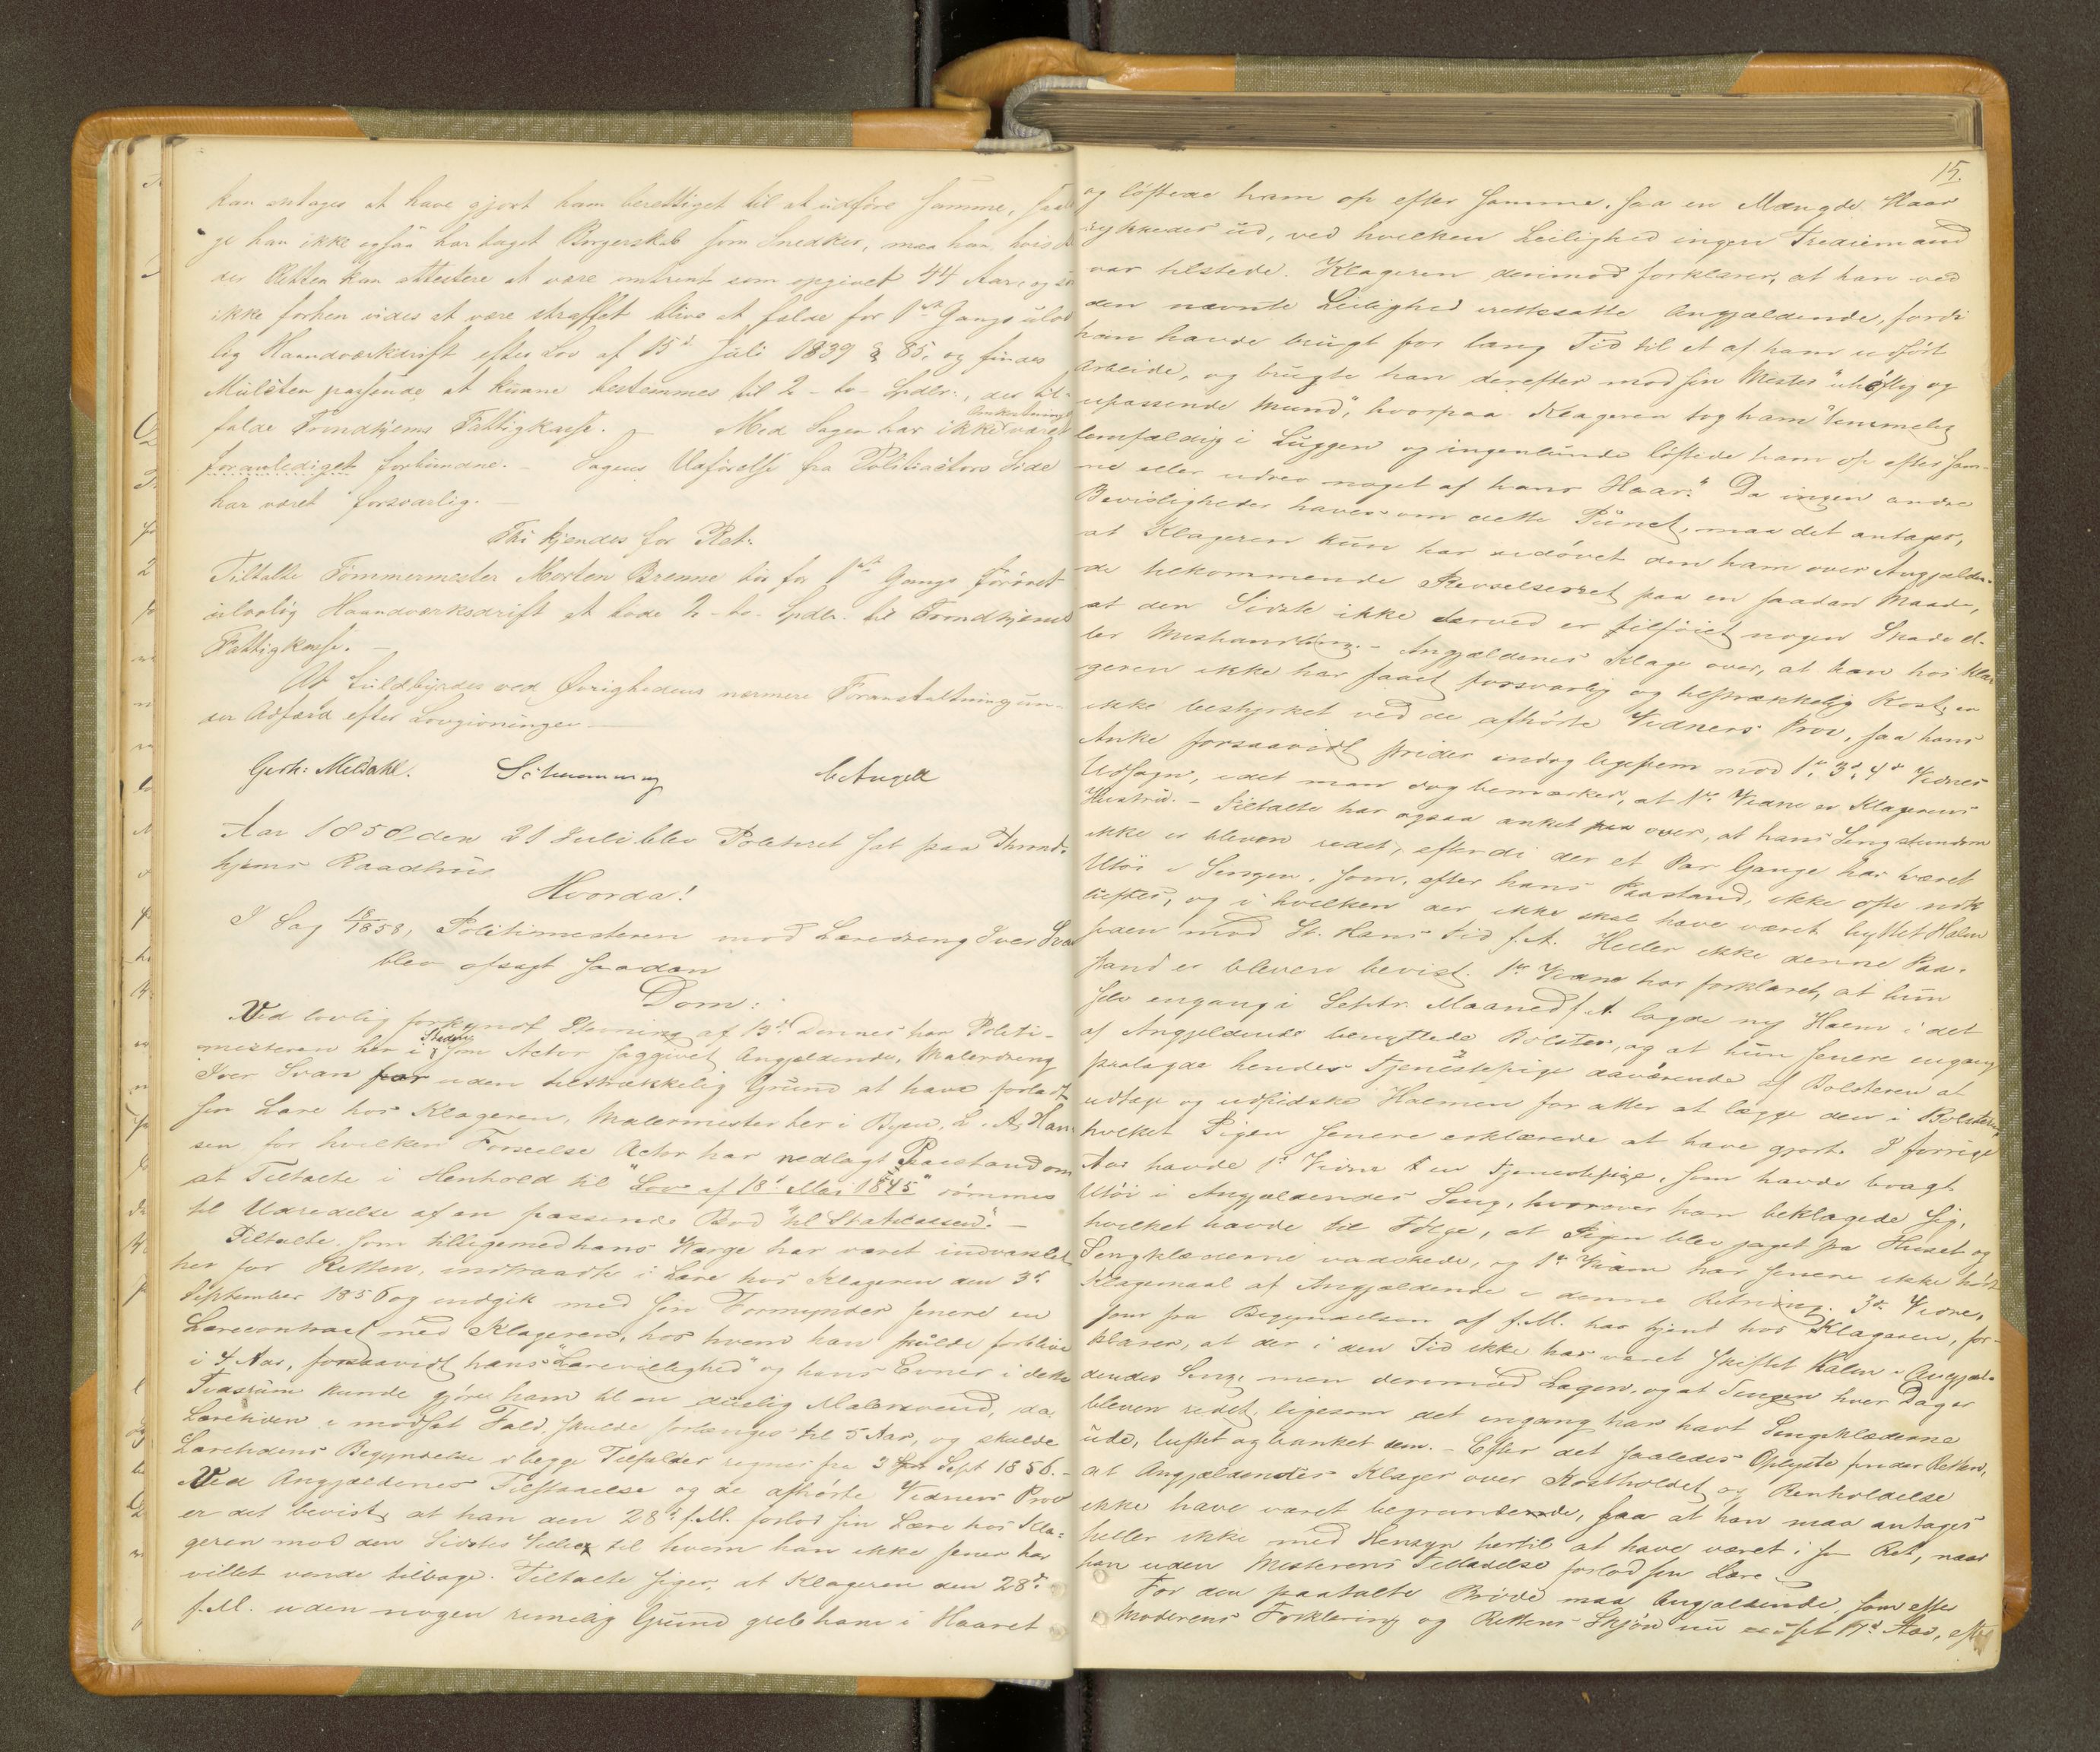 kan antages at have gjort ham berettiget til at udføre samme, saa
ge han ikke ogsaa har taget Borgerskab som Snedker, maa han, hvis
der Retten kan attestere at være omtrent som opgivet 44 Aar, og
ikke forhen vides at være straffet blive at fælde for 1ste Gangs ulov
lig Haandværkdrift efter Lov af 15de Juli 1839 § 85, og findes
Mulcten passende at kunne bestemmes til 2 - to - Spdlr., der til-
falde Trondhjems Fattigkasse. - Med Sagen har ikke Omkostninger været
foranlediget forbundne. - Sagens Udførelse fra Politiactors Side
har været forsvarlig. -
Thi kjendes for Ret:
Tiltalte Tømmermester Morten Brenne bør for 1ste Gangs forøvet
ulovlig Haandværksdrift at bøde 2 - to - Spdlr. til Trondhjems
Fattigkasse. -
At fuldbyrdes ved Øvrighedens nærmere Foranstaltning un-
der Adfærd efter Lovgivningen -
Gerh: Meldahl. Schwenning C. Angell
Aar 1858 den 21 Juli blev Politiret sat paa Thrond-
hjems Raadhus
Hvorda!
I Sag 18/1858, Politimesteren mod Læredreng Iver Svan
blev afsagt saadan
Dom:
Ved lovlig forkyndt Stevning af 13de dennes har Politi-
mesteren her i Staden som Actor saggivet Angjældende, Malerdreng
Iver Svan for uden tilstrækkelig Grund at have forladt
sin Lære hos Klageren, Malermester her i Byen, L. A. Han-
sen for hvilken Forseelse Actor har nedlagt Paastand om
at Tiltalte i Henhold til "Lov af 18de Mai 1845" dømmes
til Udredelse af en passende Bod "til Statskassen". -
Tiltalte, som tilligemed hans Værge har været indvarslet
her for Retten, indtraadte i Lære hos Klageren den 3de
September 1856 og indgik med sin Formynder senere en
Lærecontract med Klageren, hos hvem han skulde forblive
i 4 Aar, forsaavidt hans "Lærevillighed" og hans Evner i dette
Tidsrum kunde gjøre ham til en duelig Malersvend, da
Læretiden i modsat Fald skulde forlænges til 5 Aar, og skulde
Læretidens Begyndelse i begge Tilfælde regnes fra 3 Sept 1856. -
Ved Angjældendes Tilstaaelse og de afhørte Vidners Prov
er det bevist, at han den 28de f. M. forlod sin Lære hos Kla-
geren mod den Sidstes Villie, til hvem han ikke senere har
villet vende tilbage. Tiltalte siger, at Klageren den 28de
f. M. uden nogen rimelig Grund greb ham i Haaret
15.
og løftede ham op efter samme, saa en Mængde Haar
rykkedes ud, ved hvilken Leilighed ingen Trediemand
var tilstede. Klageren derimod forklarer, at han ved
den nævnte Leilighed irettesatte Angjældende, fordi
han havde brugt for lang Tid til et af ham udført
Arbeide, og brugte han derefter mod sin Mester "uhøflig og
upassende Mund", hvorpaa Klageren tog ham "temmelig
lemfældig i Luggen og ingenlunde løftede ham op efter sam-
me eller udrev noget af hans Haar." Da ingen andre
Bevisligheder haves om dette Punct, maa det antages,
at Klageren kun har udøvet den ham over Angjælden-
de tilkommende Revselsesret paa en saadan Maade,
at den Sidste ikke derved er tilføiet nogen Skade el-
ler Mishandling. - Angjældenes Klage over, at han hos Kla-
geren ikke har faaet forsvarlig og tilstrækkelig Kost, er
ikke bestyrket ved de afhørte Vidners Prov, saa hans
Anke forsaavidt strider endog ligefrem mod 1ste, 3de, 4de Vidnes
Udsagn, idet man dog bemærker, at 1ste Vidne er Klagerens
Hustru. - Tiltalte har ogsaa anket over, at hans Seng stundom
ikke er bleven redet, efterdi der et Par Gange har været
Utøi i Sengen, som, efter hans Paastand, ikke ofte nok
luftes, og i hvilken der ikke skal have været byttet Halm
siden mod St. Hans Tid f. A. Heller ikke denne Paa-
stand er bleven bevist. 1ste Vidne har forklaret, at hun
selv engang i Septr. Maaned f. A. lagde ny Halm i det
af Angjældende benyttede Bolster, og at hun senere engang
paalagde hendes Tjenestepige daværende af Bolsteren at
udtage og udpidske Halmen for atter at lægge den i Bolsteren,
hvilket Pigen senere erklærede at have gjort. I forrige
Aar havde 1ste Vidne en Tjenestepige, som havde bragt
Utøi i Angjældendes Seng, hvorover han beklagede sig,
hvilket havde til Følge, at Pigen blev jaget fra Huset og
Sengklæderne vadskede, og 1ste Vidne har senere ikke hørt
Klagemaal af Angjældende i denne Retning. 3de Vidne,
som fra Begyndelsen af f. M. har tjent hos Klageren, for-
klarer, at der i den Tid ikke har været skiftet Halm i Angjæl-
dendes Seng, men derimod Lagen, og at Sengen hver Dag er
bleven redet, ligesom det engang har havt Sengeklæderne
ude, luftet og banket dem. - Efter det saaledes Oplyste finder Retten,
at Angjældendes Klager over Kostholdet og Renholdelse
ikke have været begrundede, saa at han maa antages
heller ikke med Hensyn hertil at have været i sin Ret, naar
han uden Mesterens Tilladelse forlod sin Lære -
For den paatalte Brøde maa Angjældende, som efter
Moderens Forklaring og Rettens Skjøn nu er i sit 17de Aar, eft